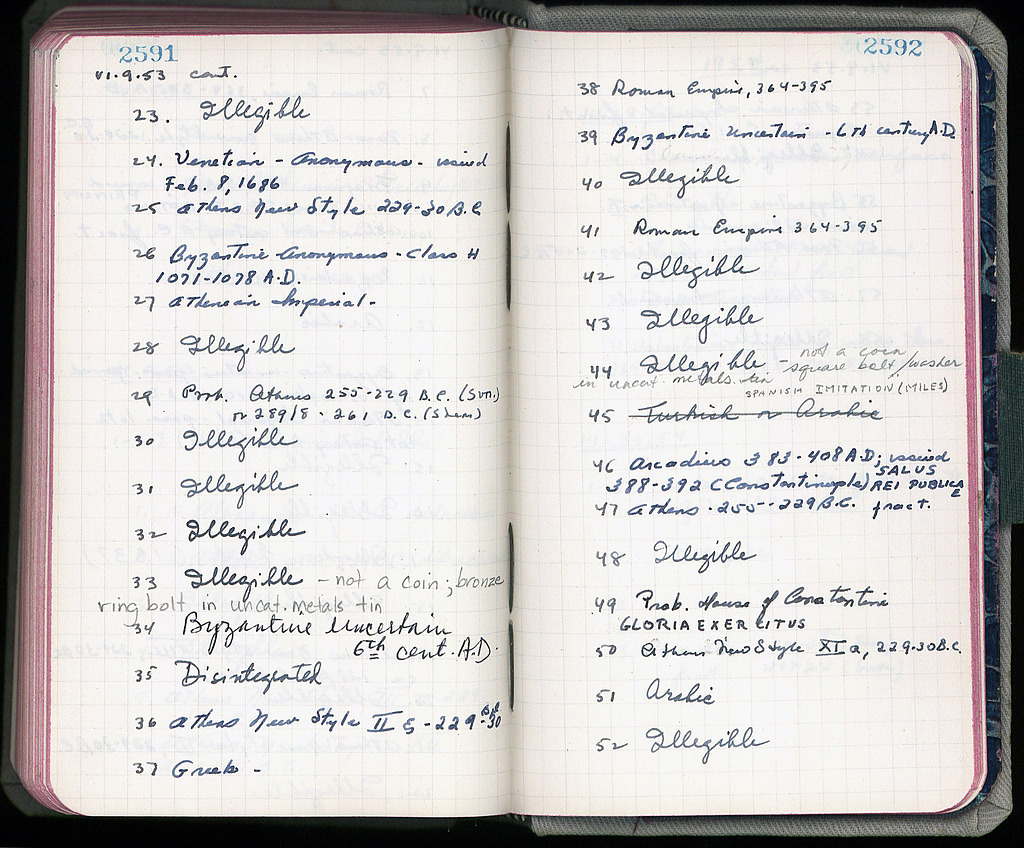 2591
VI.9.53 cont.
23. Illegible
24. Venetian - Anonymous - issued
Feb. 8, 1686
25 Athens New Style 229-30 B.C.
26 Byzantine Anonymous - Class H
1071-1078 A.D.
27 Athenian Imperial -
28 Illegible
29 Prob. Athens 255-229 B.C. (Svor.)
or 289/8 - 261 B.C. (Shear)
30 Illegible
31 Illegible
32 Illegible
33 Illegible - not a coin; bronze
ring bolt in uncat. metals tin
34 Byzantine Uncertain
6th cent. A.D.
35 Disintegrated
36 Athens New Style II - 229-30 B.C.
37 Greek -
2592
38 Roman Empire, 364-395
39 Byzantine Uncertain - 6th century A.D.
40 Illegible
41 Roman Empire 364-395
42 Illegible
43 Illegible
44 Illegible - not a coin
square bolt/washer
in uncat. metals tin
SPANISH IMITATION (MILES)
45 Turkish or Arabic
46 Arcadius 383-408 A.D; issued
388-392 (Constantinople) SALUS
REI PUBLICAE
47 Athens - 255-229 B.C. fract.
48 Illegible
49 Prob. House of Constantine
GLORIA EXERCITUS
50 Athens New Style XI a, 229-30 B.C.
51 Arabic
52 Illegible